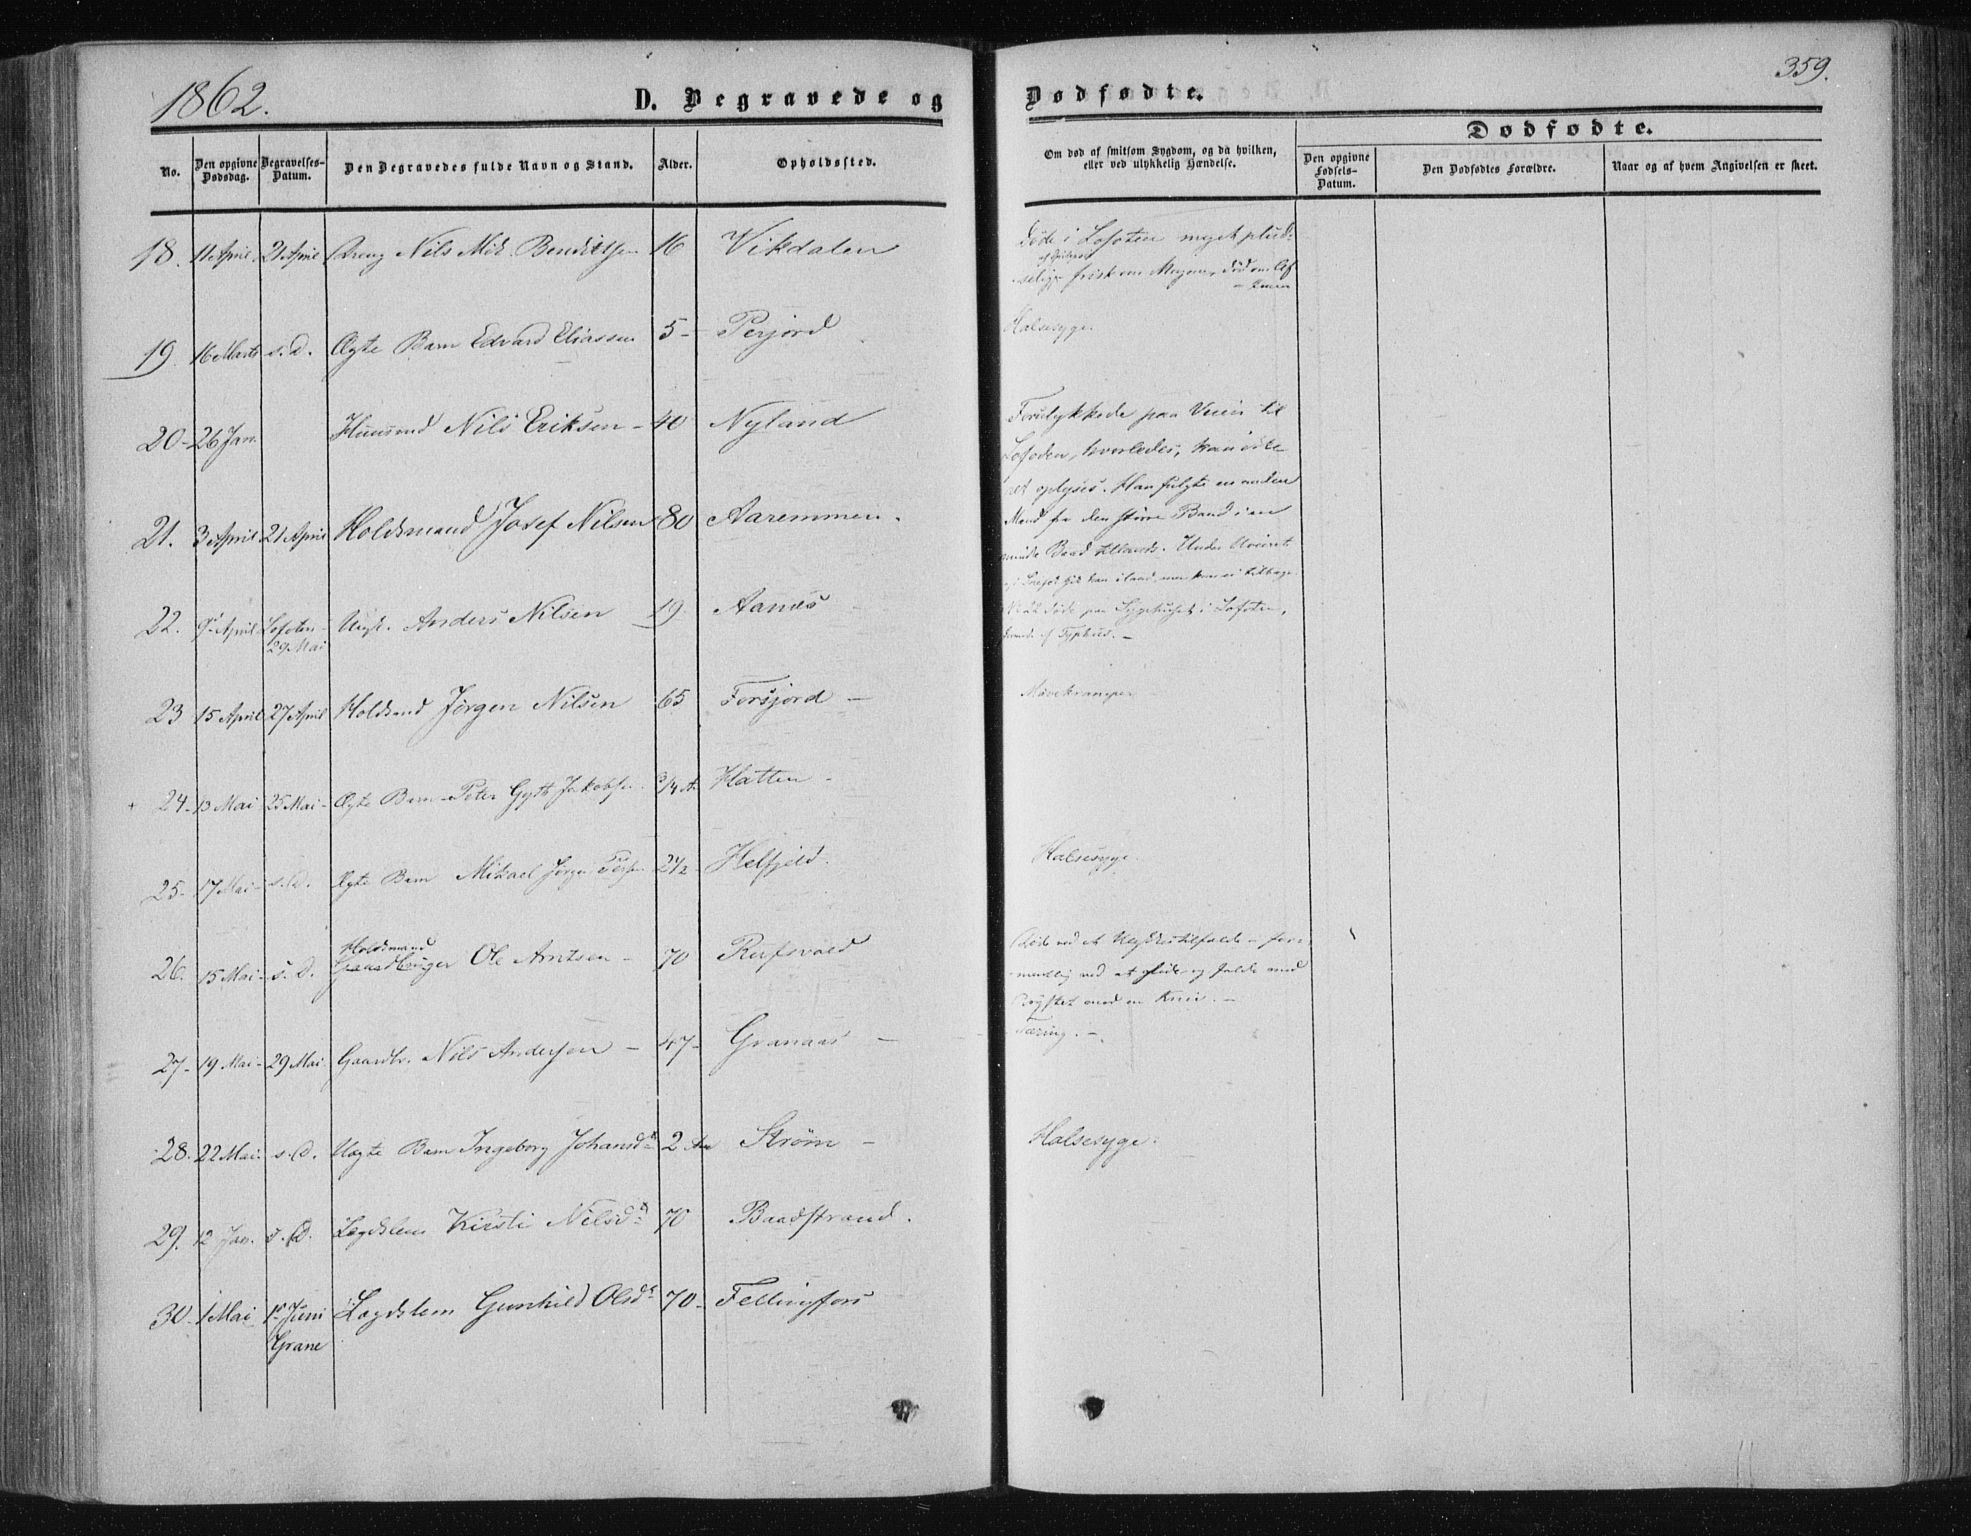 1862.
D. Begravede og
Dødfødte.
359.
No.
Den opgivne Dødsdag.
Begravelses-Datum.
Den Begravedes fulde Navn og Stand.
Alder.
Opholdssted.
Om død af smitsom Sygdom, og da hvilken, eller ved ulykkelig Hændelse.
Dødfødte.
Den opgivne Fødsels-Datum.
Den Dødfødtes Forældre.
Naar og af hvem Angivelsen er skeet.
18. 11 April. 21 April Dreng Nils Mik. Benditsen 16 Vikdalen
Døde i Lofoten meget plud-
selig, frisk om Morgen, død om Af-
tenen
19. 16 Marts s. D. Ægte Barn Edvard Eliassen 5 - Perjord Halsesyge.
20 - 26 Jan. Huusmd Nils Eriksen - 40 Nyland
Forulykkede paa Veien til
Lofoden, hvorledes, kan ikke
ret oplyses. Han fulgte en anden
Mand fra den større Baad i en
mindre Baad tillands. Under Uveiret
21. 3 April 21 April Holdsmand Josef Nilsen 80 Aaremmen.
22. 9 April Lofoten 29 Mai Ungk. Anders Nilsen 19 Aanes
døde paa Sygehuset i Lofoten,
af Typhus. -
23 15 April 27 April Holdsmd Jørgen Nilsen 65 Forsjord - Mavekramper
+ 24 - 13 Mai 25 Mai - Ægte Barn Peter Gytt Jakobsen 3/4 A. Hatten -
25 - 17 Mai - s. D. Ægte Barn Mikael Jørgen 2 1/2 Helfjeld. Halsesyge.
26. 15 Mai - s. D. Holdsmand Gaardbruger Ole Arntsen - 70 Rufsvold
Døde ved et Ulykkestilfælde - for-
mentlig ved at glide og falde med
Brystet mod en Kniv. -
27 - 19 Mai - 29 Mai Gaardbr. Nils Andersen - 47 - Granaas - Tæring. -
28. 22 Mai - s. D. Uægte Barn Ingeborg Johansdr 2 Aar Strøm - Halsesyge.
29. 12 Jan. s. D. Lægdslem Kirsti Nilsdr 70 Baadstrand.
30 - 1 Mai 1 Juni Grane Lægdslem Gunhild Olsdr 70 - Fellingfors